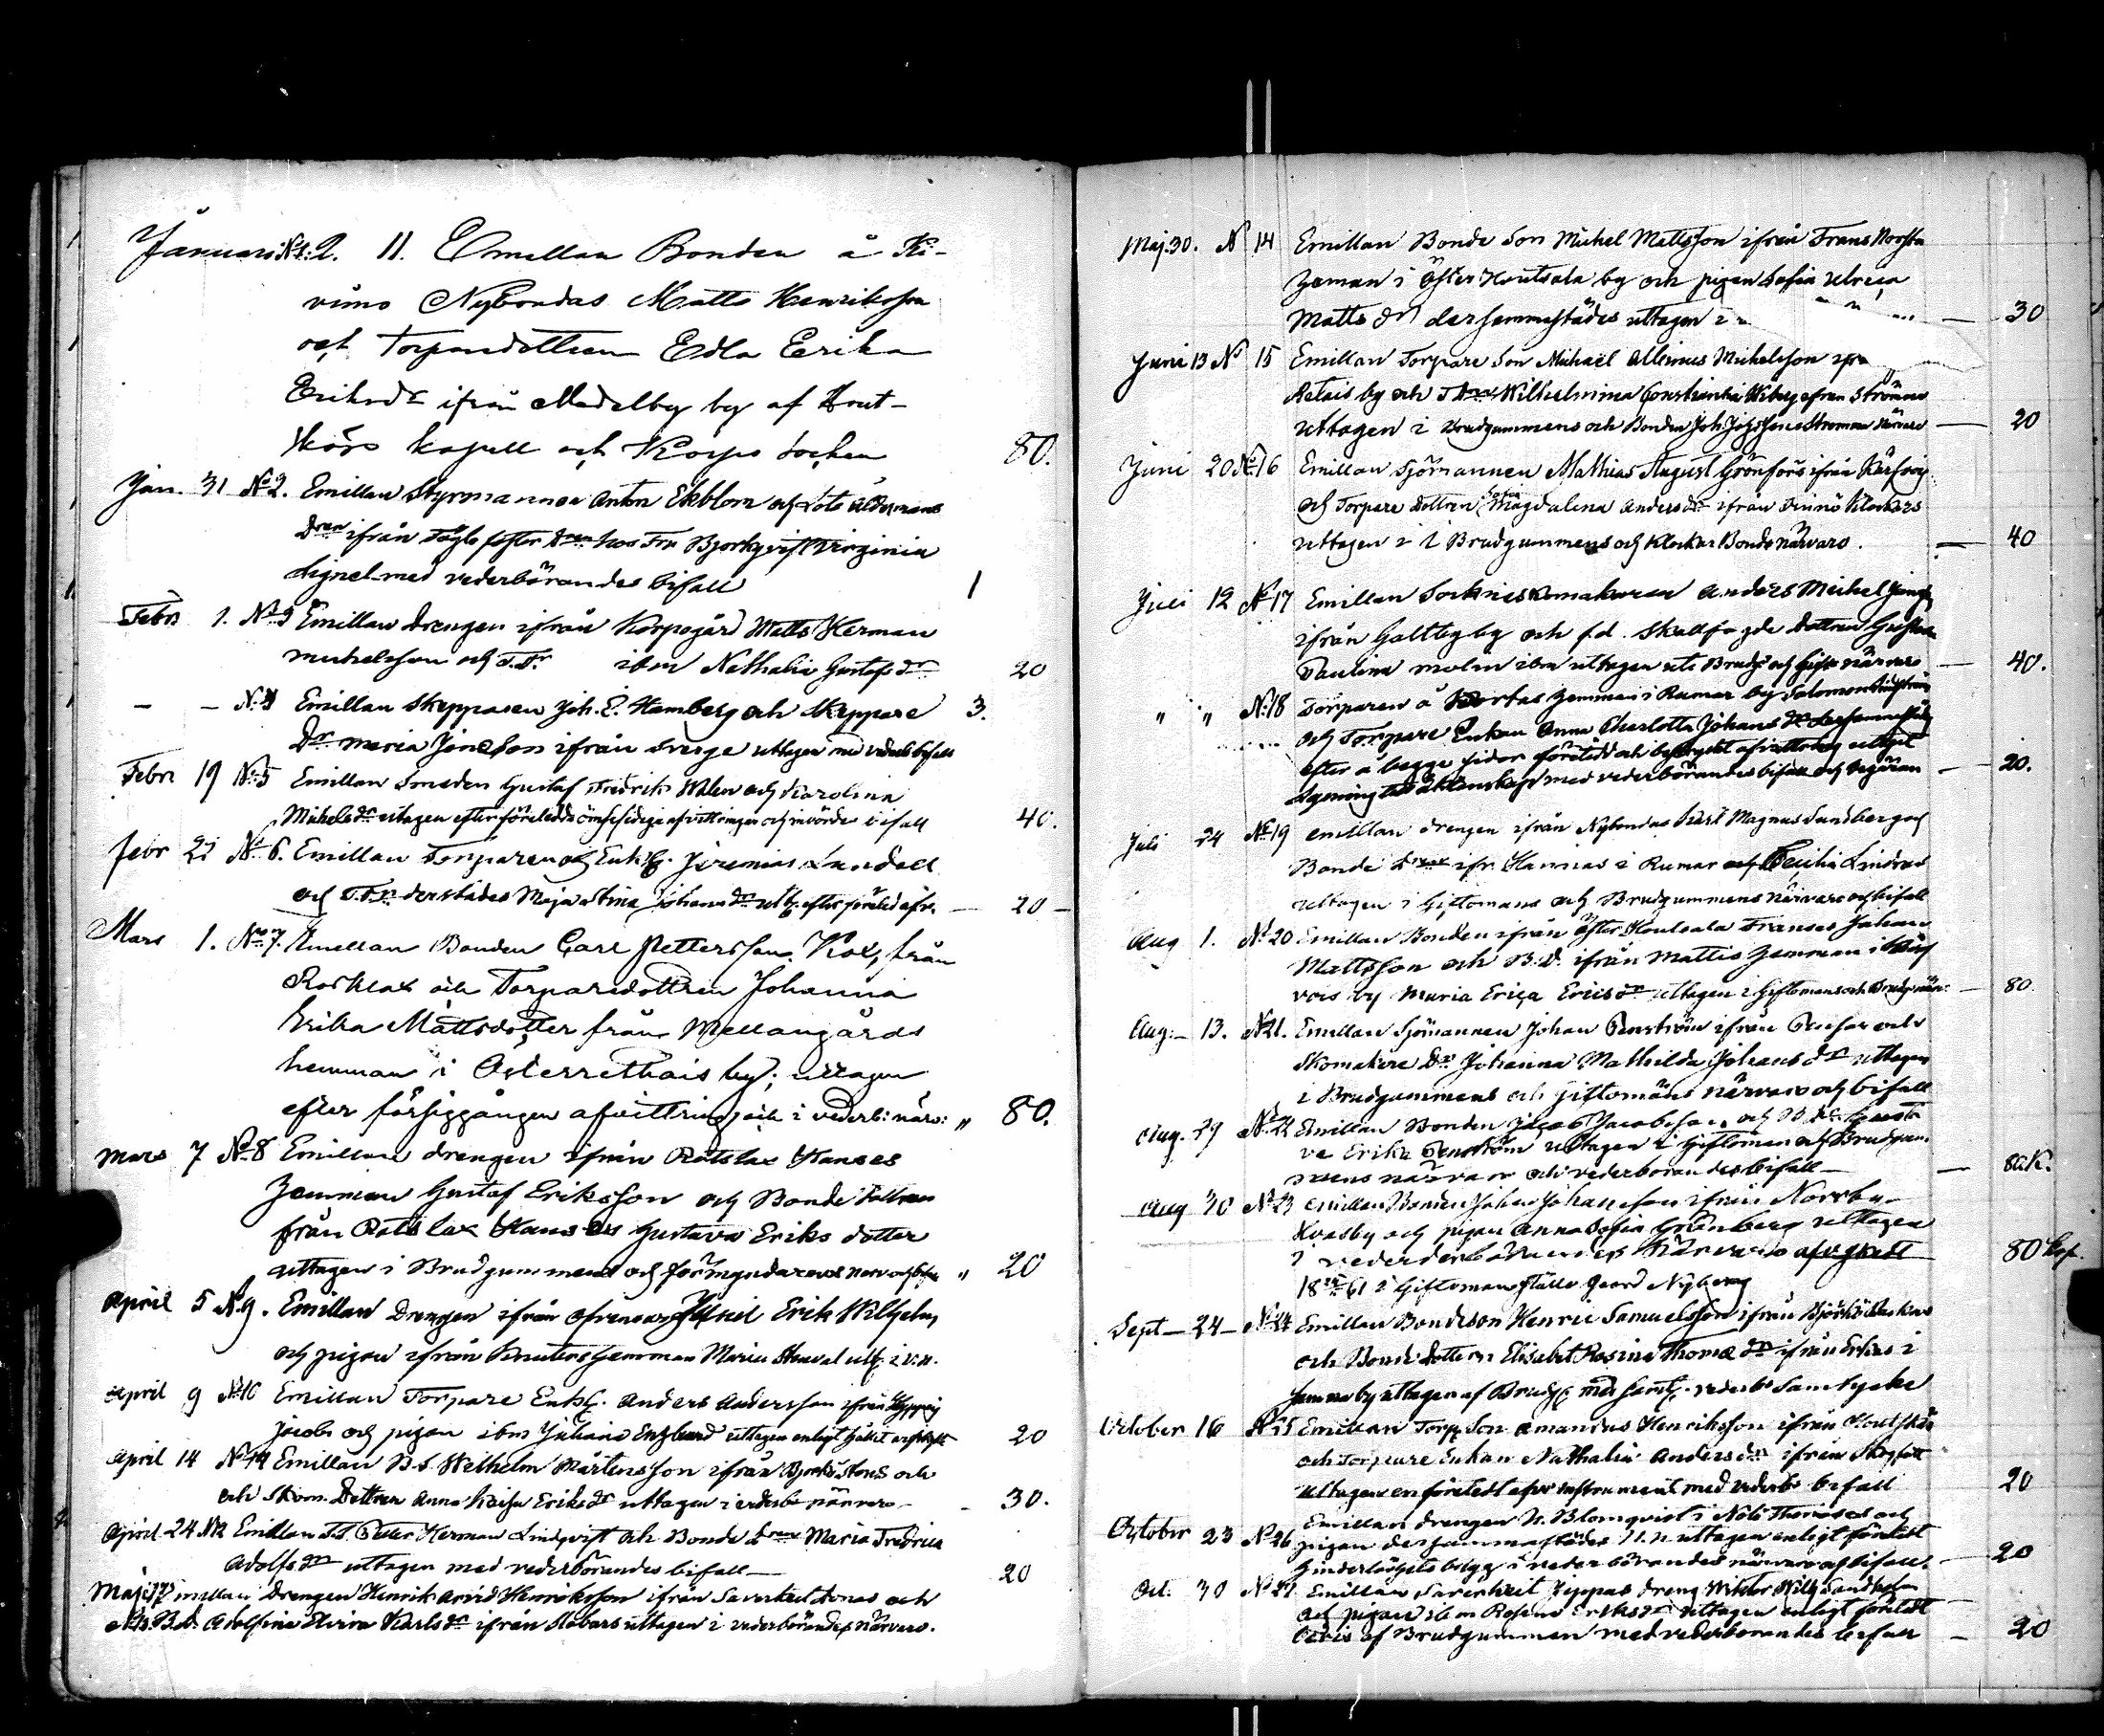 Januari No 1. 2. 11. Emellan Bonden å Ki-
vimo Nybondas Matts Henriksson
och Torparedottren Edla Erika
Eriksdr ifrån Medelby by af Hout-
skärs kapell och Korpo Socken 80.
Jan. 31 No 2. Emillan Styrmannen Anton Ekblom och Lots Åldermans
Dren ifrån Föglö foster Dren hos Fru Bjorkqvist Virginia
Signel med vederbörandes bifall 1
Febr 1. No 3 Emillan Drengen ifrån Korpogård Matts Herman
Michelsson och T.Dr ibm Nathalia Gustafs dr 20
- - N. 4 Emillan Skepparen Joh. E. Hamberg och Skeppare 3.
Dr Maria Jonsson ifrån Sverge uttagen med vederb bifall
Febr 19 No 5 Emillan Smeden Gustaf Fredrik Walen och Karolina
Michels dr uttagen efter företedde ömsesidiga afvittringar och vederbörandes bifall 40.
febr 22 No 6. Emillan Torparen och Enkl. Jeremias Lundell
och T.Dr derstädes Maja Stina Johans dr utt. efter företed afv. — 20 —
Mars 1. No 7. Emellan Bonden Carl Pettersson Kox, från
Rosklax och Torparedottren Johanna
Erika Mattsdotter från Mellangårds
hemman i Österrethais by; uttagen
efter försiggången afvittring och i vederb: närv: " 80.
Mars 7 No 8 Emillan drengen ifrån Rotslax Hanses
hemman Gustaf Eriksson och Bonde dottren
från Rotslax Hanses Gustava Eriks dotter
uttagen i Brudgummens och förmyndarens närv och bifall " 20
April 5 N. 9. Emillan Drengen ifrån Erik Wilhelm
och pigan ifrån Knutens hemman Maria Stenval utt. i v: n.
April 9 No 10 Emillan Torpare Enkl. Anders Andersson ifrån
Jacobs och pigan ibm Juliana Englund uttagen enligt 20
April 14 No 11 Emillan B.S. Wilhelm Mårtensson ifrån Björkö Storö och
och Skom. Dottren Anna Kaisa Eriks dr uttagen i vederb närvaro — 30.
April 24 No 12 Emillan T.S. Petter Herman Lindqvist och Bonde Dren Maria Fredrica
Adolfs dr uttagen med vederbörandes bifall — 20
Maj 17 Emillan Drengen Henrik Arvid Henriksson ifrån Saverkeit Jonas och
No 13. B.D. Adolfina Elvira Karls dr ifrån uttagen i vederbörandes närvaro.
Maj. 30. N 14 Emillan Bonde Son Michel Mattsson ifrån Frans Norsta
hemman i Öster Houtsala by och pigan Sofia Ulrica
Matts dr dersammastädes uttagen i — 30
Juni 13 No 15 Emillan Torpare Son Michaël Allinus Michelsson ifrå
Retais by och T.Dren Wilhelmina Constantia Wiberg ifrån Strömma
Uttagen i Brudgummens och Bonden Joh. Johssons Strömma närvaro — 20
Juni 20 No 16 Emillan Sjömannen Mathias August Grönfors ifrån
och Torpare Dottren Magdalena Anders dr ifrån Finnö Klockars
uttagen i Brudgummens och Klockar Bonds närvaro. — 40
Juli 12 No 17 Emillan Sockneskomakaren Anders Michel
ifrån Galtby by och f.d. Skallfogde Dottren Gustava
Paulina Molin ibm uttagen uti Brudgs och Giftom närvaro — 40.
" " N. 18 Torparen å hemman i Rumar by Salomon Lindström
och Torpare Enkan Anna Charlotta Johans dr dersammastädes
efter å begge sidor företedd och afvittring utlyst
lysning till äktenskap med vederbörandes bifall och begäran — 20.
Juli 24 No 19 Emillan drengen ifrån Nybondas Karl Magnus Sundberg och
Bonde Dren ifr. Hannas i Rumar och Cecilia Lindroos
uttagen i Giftomans och Brudgummens närvaro och bifall
Aug 1. No 20 Emillan Bonden ifrån Öster Houtsala Franses Johan
Mattsson och B.D. ifrån Mattis hemman i
vois by Maria Erica Erics dr uttagen i Giftomans och Brudg när: — 80.
Aug. — 13. No 21. Emillan Sjömannen Johan Penström ifrån Pensar och
Skomakare Dr Johanna Mathilda Johans dr uttagen
i Brudgummens och Giftomans närvaro och bifall
Aug. 29 No 22 Emillan Bonden Jacob Jacobsson och B.D. Gusta
va Erika Penström uttagen i Giftoman och Brudgum-
mens närvaro och vederbörandes bifall — — 80 K.
Aug 30 No 23 Emillan Bonden Johan Johansson ifrån Norrby
Kvasby och pigan Anna Sofia Grönberg uttagen
i vederbörandes närvaro 80 kop.
18 61 i Giftomans ställe Geard Nyberg
Sept — 24 — No 24 Emillan Bondeson Henric Samuelsson ifrån Björkö
och Bonde dottren Elisabet Rosina Thomæ dr ifrån Erkas i
samma by uttagen af Brudg med samtl. vederb Samtycke
October 16 No 25 Emillan Torp. Son Amandus Henriksson ifrån Houtskär
och Torpare Enkan Nathalia Anders dr ifrån
uttagen en företedt afvr instrument med vederb bifall 20
October 23 No 26 Emillan drengen N. Blomqvist i Nötö Thomases och
pigan dersammastädes N.N. uttagen enligt företedt
hinderlöshets betyg i vederbörandes närvaro och bifall. — 20
Oct. 30 No 27 Emillan Saverkeit Jeppas dreng Wiktor Wilh Sandholm
och pigan ibm Rosina Eriks dr uttagen enligt företedt
bevis af Brudgummen med vederbörandes bifall — 20